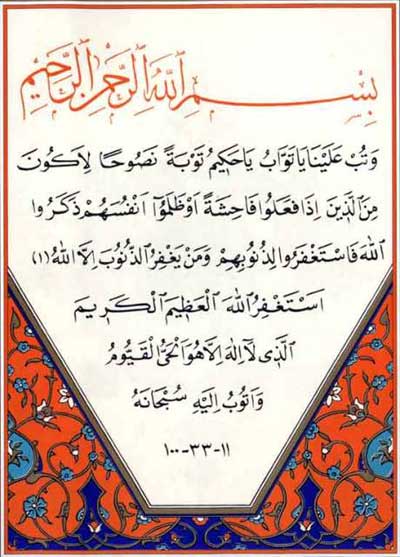 بِسْمِ ٱللَّهِ ٱلرَّحْمٰنِ ٱلرَّحِيمِ
وَتُبْ عَلَيْنَا يَا تَوَّابُ يَا حَكِيمُ تَوْبَةً نَصُوحًا لِاَكُونَ
مِنَ الَّذِينَ اِذَا فَعَلُوا فَاحِشَةً اَوْ ظَلَمُوٓا اَنْفُسَهُمْ ذَكَرُوا
اللّٰهَ فَاسْتَغْفَرُوا لِذُنُوبِهِمْ وَمَنْ يَغْفِرُ الذُّنُوبَ اِلَّا اللّٰهُ (١)
اَسْتَغْفِرُ اللّٰهَ الْعَظِيمَ الْكَرِيمَ
الَّذِى لَٓا اِلٰهَ اِلَّا هُوَ الْحَىُّ الْقَيُّومُ
وَاَتُوبُ اِلَيْهِ سُبْحَانَهُ
١١-٣٣-١٠٠